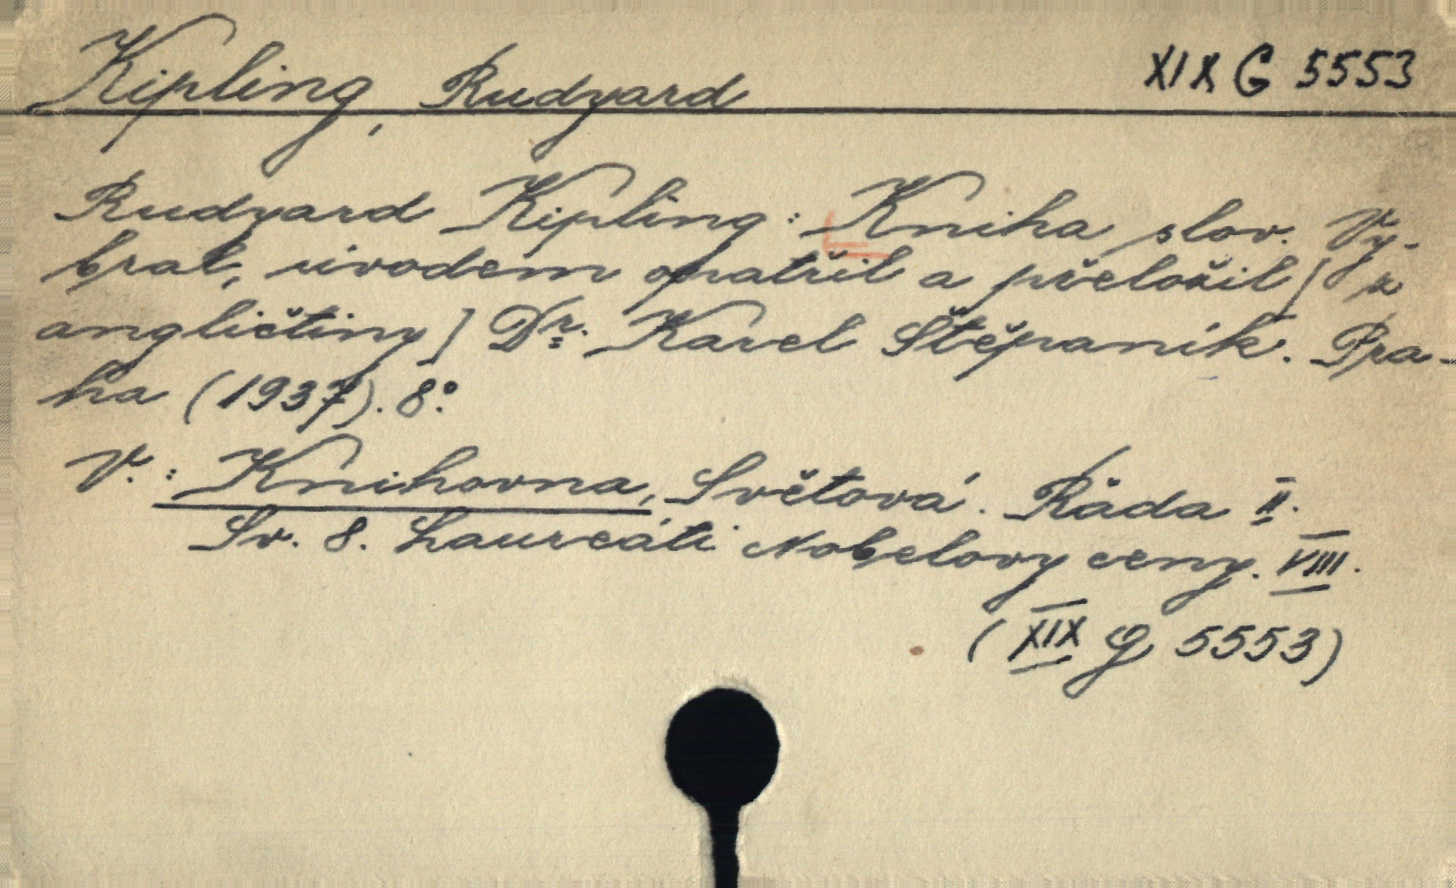 Kipling, Rudyard XIX G 5553
Rudyard Kipling: Kniha slov. Vy-
bral, úvodem opatřil a přeložil [z
angličtiny] Dr. Karel Štěpaník. Pra-
ha (1937). 8°.
V.: Knihovna, Světová. Řada II.
Sv. 8. Laureáti Nobelovy ceny. VIII.
(XIX G 5553)